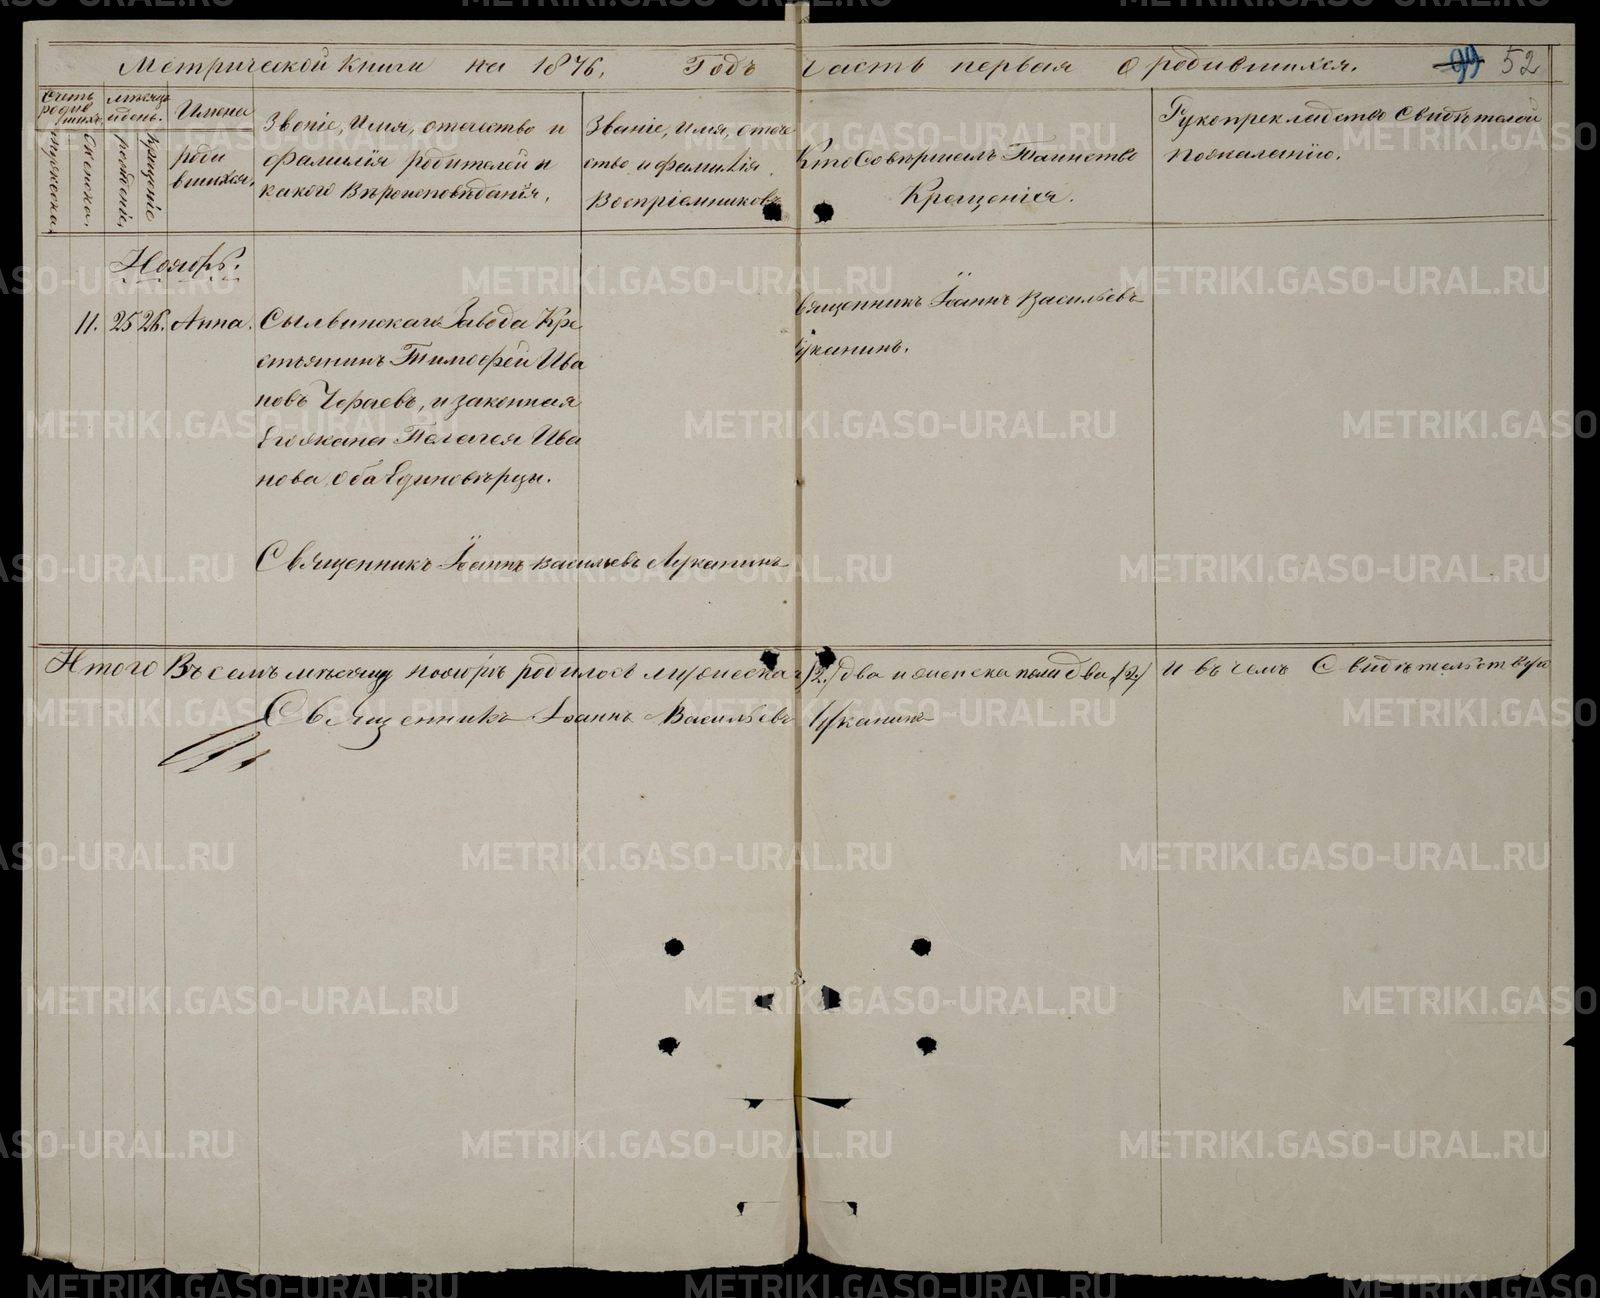 Метрической Книги на 1876, Годъ Часть первая О родившихся. 99 52
Счетъ родив шихъ.
мѣсяцъ и день.
Имена роди вшихся.
мужеска.
Женска.
рожденіе.
крещеніе
Званіе, Имя, отчество и
фамилія родителей и
какого Вѣроисповѣданія.
Званіе, имя, отче
ство и фамилія
Воспріемниковъ
Кто Совершилъ Таинство
Крещенія.
Рукоприкладство Свидѣтелей
по желанію.
Ноябрь.
11. 25 26. Анна.
Сылвинскаго Завода Кре
стьянинъ Тимофей Ива
новъ, и законная
Его жена Пелагея Ива
нова, оба Единовѣрцы.
Священникъ Іоаннъ Васильевъ
Луканинъ.
Священникъ Іоаннъ Васильевъ Луканинъ
Итого Въ семъ мѣсяцѣ ноябрѣ родилось мужеска (2.) два и женска пола два (2.) И въ чемъ Свидѣтельствую
Священникъ Іоаннъ Васильевъ Луканинъ
METRIKI.GASO-URAL.RU